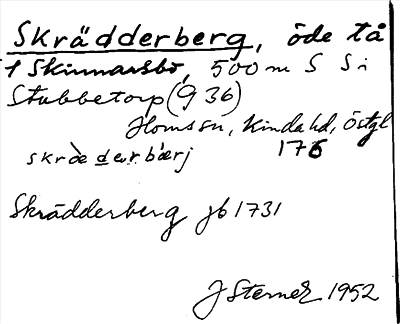 Skrädderberg, öde tå
t Skinnarsbo, 500 m S Si
Stubbetorp (G 36)
Horns sn, Kinda hd, Östgl
skrædərbærj 176
Skrädderberg jb 1731
J Sterner 1952